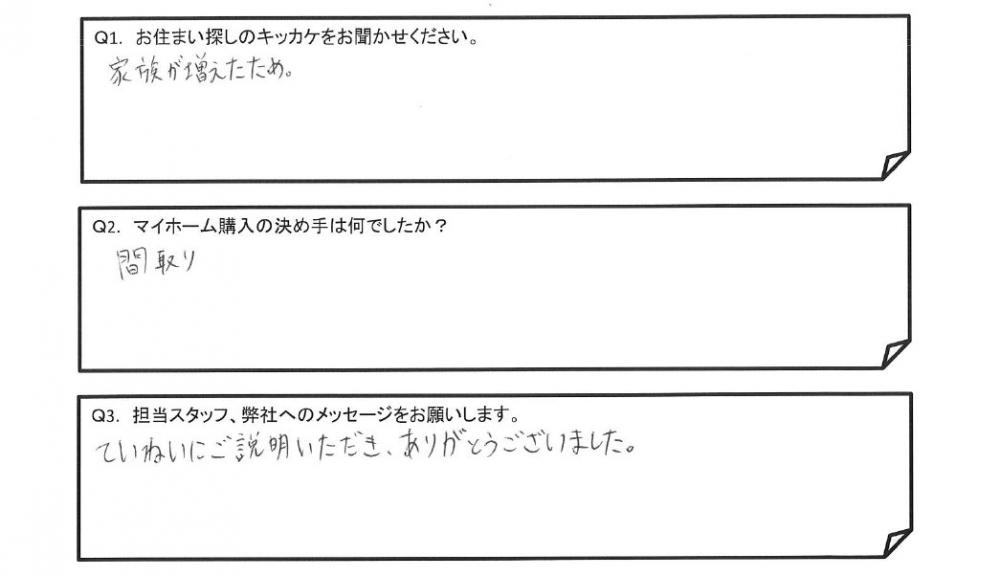 Q1. お住まい探しのキッカケをお聞かせください。
家族が増えたため。
Q2. マイホーム購入の決め手は何でしたか？
間取り
Q3. 担当スタッフ、弊社へのメッセージをお願いします。
ていねいにご説明いただき、ありがとうございました。